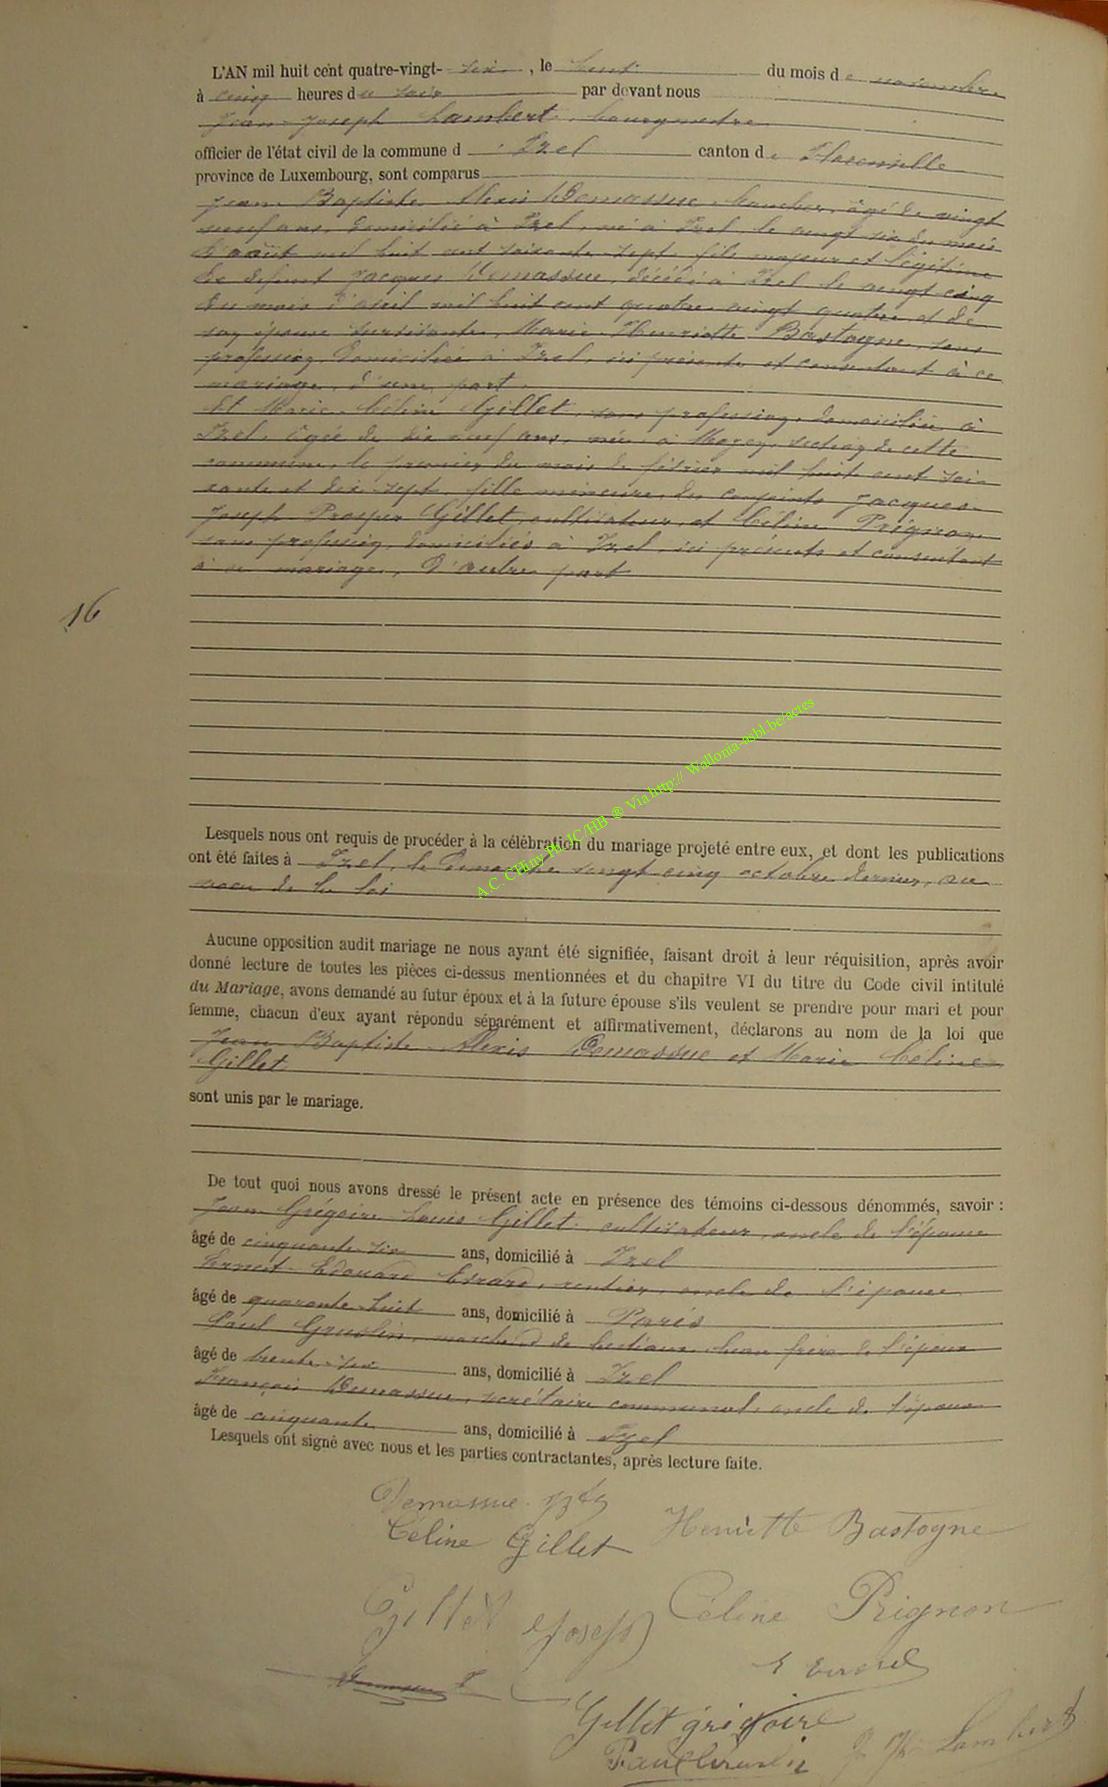 L'AN mil huit cent quatre-vingt- six , le huit du mois de novembre
à cinq heures du soir par devant nous
Jean-Joseph Lambert, bourgmestre
officier de l'état civil de la commune d'Izel canton de Florenville
province de Luxembourg, sont comparus
Jean Baptiste Alexis Demassue, âgé de vingt
neuf ans, domicilié à Izel, né à Izel le vingt six du mois
d'août mil huit cent fils majeur et légitime
de défunt Jacques Demassue, décédé à Izel le vingt cinq
du mois d'avril mil huit cent quatre vingt quatre et de
son épouse survivante, Marie Henriette Bastogne, sans
profession, domiciliée à Izel, ici présente et consentant à ce
mariage, d'une part.
Et Marie Céline Gillet, sans profession, domiciliée à
Izel, âgée de dix neuf ans, née à Moyen, section de cette
commune, le premier du mois de février mil huit cent soi-
xante et dix-sept, fille mineure, des conjoints Jacques-
Joseph Prosper Gillet, cultivateur, et Céline Prignon,
sans profession, domiciliés à Izel, ici présents et consentant
à ce mariage, D'autre part
16
Lesquels nous ont requis de procéder à la célébration du mariage projeté entre eux, et dont les publications
ont été faites à Izel, le Dimanche vingt cinq octobre dernier, au
voeu de la loi
A.C. CHiny Ph.JC/HB ® Via http:// Wallonia-asbl.be/actes
Aucune opposition audit mariage ne nous ayant été signifiée, faisant droit à leur réquisition, après avoir
donné lecture de toutes les pièces ci-dessus mentionnées et du chapitre VI du titre du Code civil intitulé
du Mariage, avons demandé au futur époux et à la future épouse s'ils veulent se prendre pour mari et pour
femme, chacun d'eux ayant répondu séparément et affirmativement, déclarons au nom de la loi que
Jean Baptiste Alexis Demassue et Marie Céline
Gillet
sont unis par le mariage.
De tout quoi nous avons dressé le présent acte en présence des témoins ci-dessous dénommés, savoir :
Jean Grégoire Louis Gillet, cultivateur, oncle de l'épouse
âgé de cinquante-six ans, domicilié à Izel
Ernest Edouard Evrard, rentier, oncle de l'épouse
âgé de quarante huit ans, domicilié à Paris
Paul marchand de bestiaux, beau frère de l'époux
âgé de trente-six ans, domicilié à Izel
François Demassue, secrétaire communal, oncle de l'époux
âgé de cinquante ans, domicilié à Izel
Lesquels ont signé avec nous et les parties contractantes, après lecture faite.
Demassue Bte
Céline Gillet Henriette Bastogne
Gillet Joseph Céline Prignon
E Evrard
Gillet grégoire
Paul J. Jh. Lambert